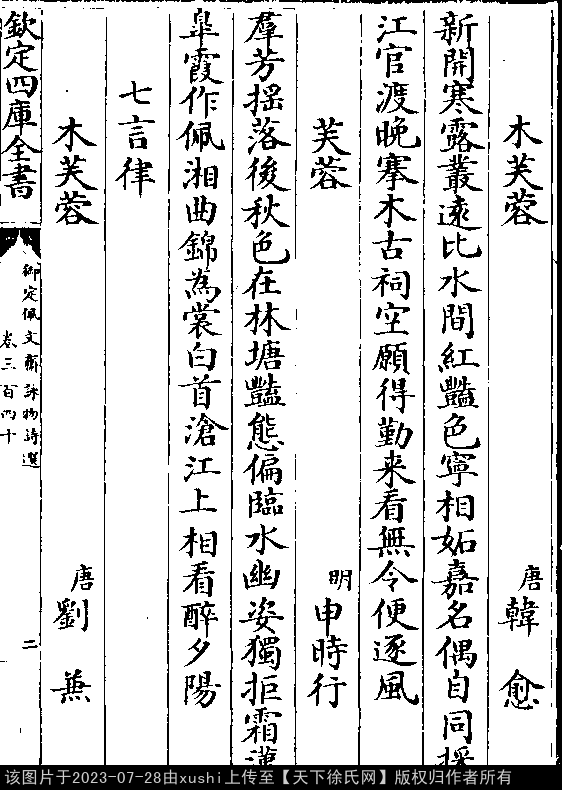 木芙蓉 唐 韓 愈
新開寒露叢逺比水間紅豔色寧相妬嘉名偶自同採
江官渡晚搴木古祠空願得勤来看無令便逐風
芙蓉 明 申時行
羣芳揺落後秋色在林塘豔態偏臨水幽姿獨拒霜漢
臯霞作佩湘曲錦為裳白首滄江上相看醉夕陽
七言律
木芙蓉 唐 劉 兼
欽定四庫全書
御定佩文齋詠物詩選
卷三百四十
二
该图片于2023-07-28由xushi上传至【天下徐氏网】版权归作者所有